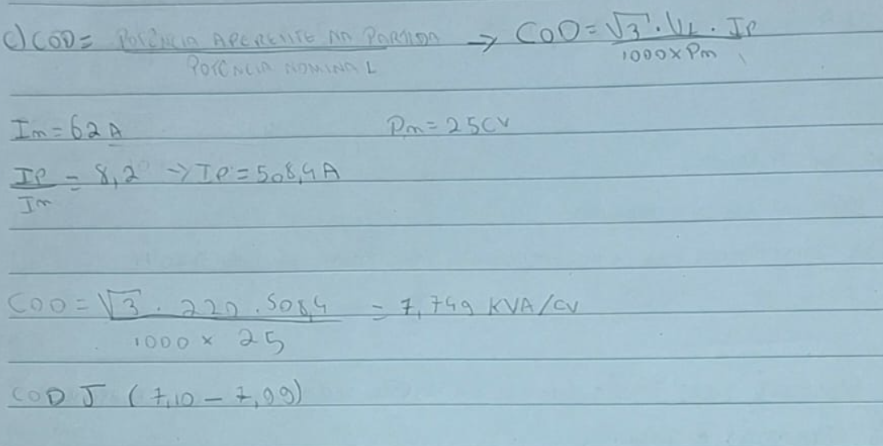 c) COD = POTÊNCIA APERENTE NA PARTIDA / POTÊNCIA NOMINAL → COD = √3 . VL . IP / 1000 x Pm
Im = 62 A Pm = 25 CV
IP / Im = 8,2 → IP = 508,4 A
COD = √3 . 220 . 508,4 / 1000 x 25 = 7,749 KVA/CV
COD J (7,10 - 7,99)